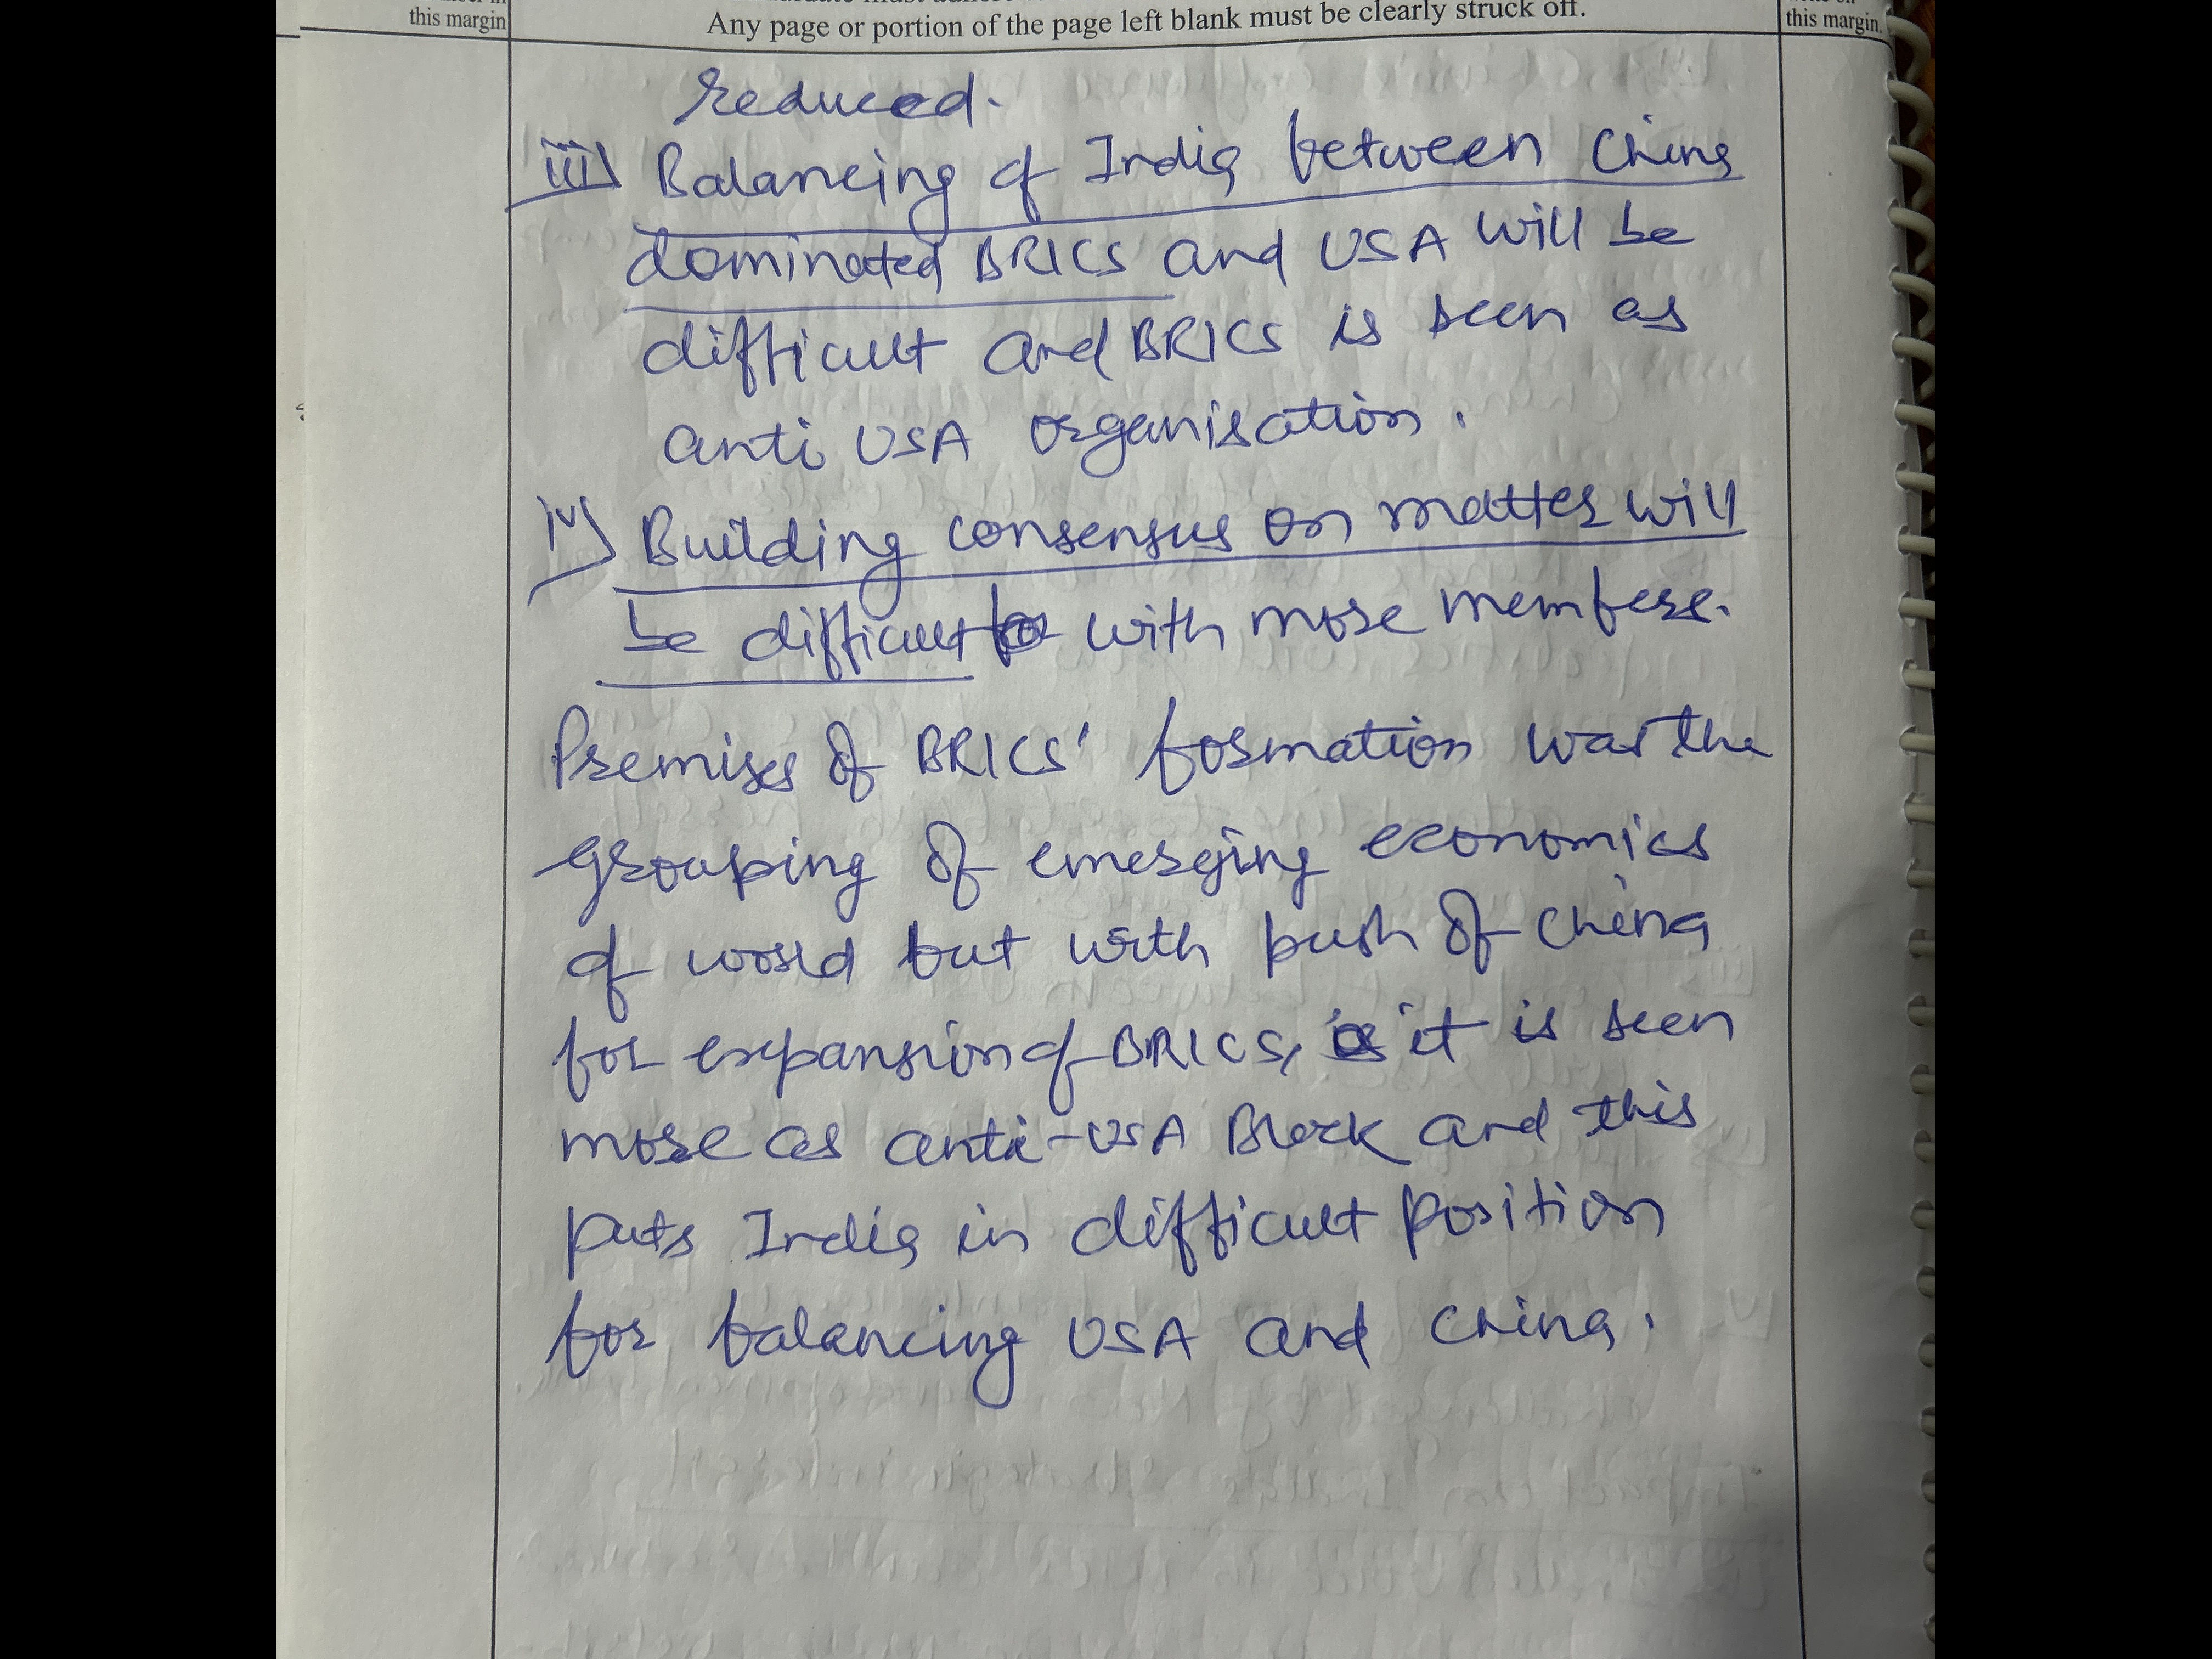 this margin
Any page or portion of the page left blank must be clearly struck off.
this margin.
reduced.
iii) Balancing of India between China
dominated BRICS and USA will be
difficult and BRICS is seen as
anti USA organisation.
iv) Building consensus on matter will
be difficult with more members.
Premises of BRICS' formation was the
grouping of emerging economies
of world but with push of China
for expansion of BRICS, it is seen
more as anti-USA Block and this
puts India in difficult position
for balancing USA and China.